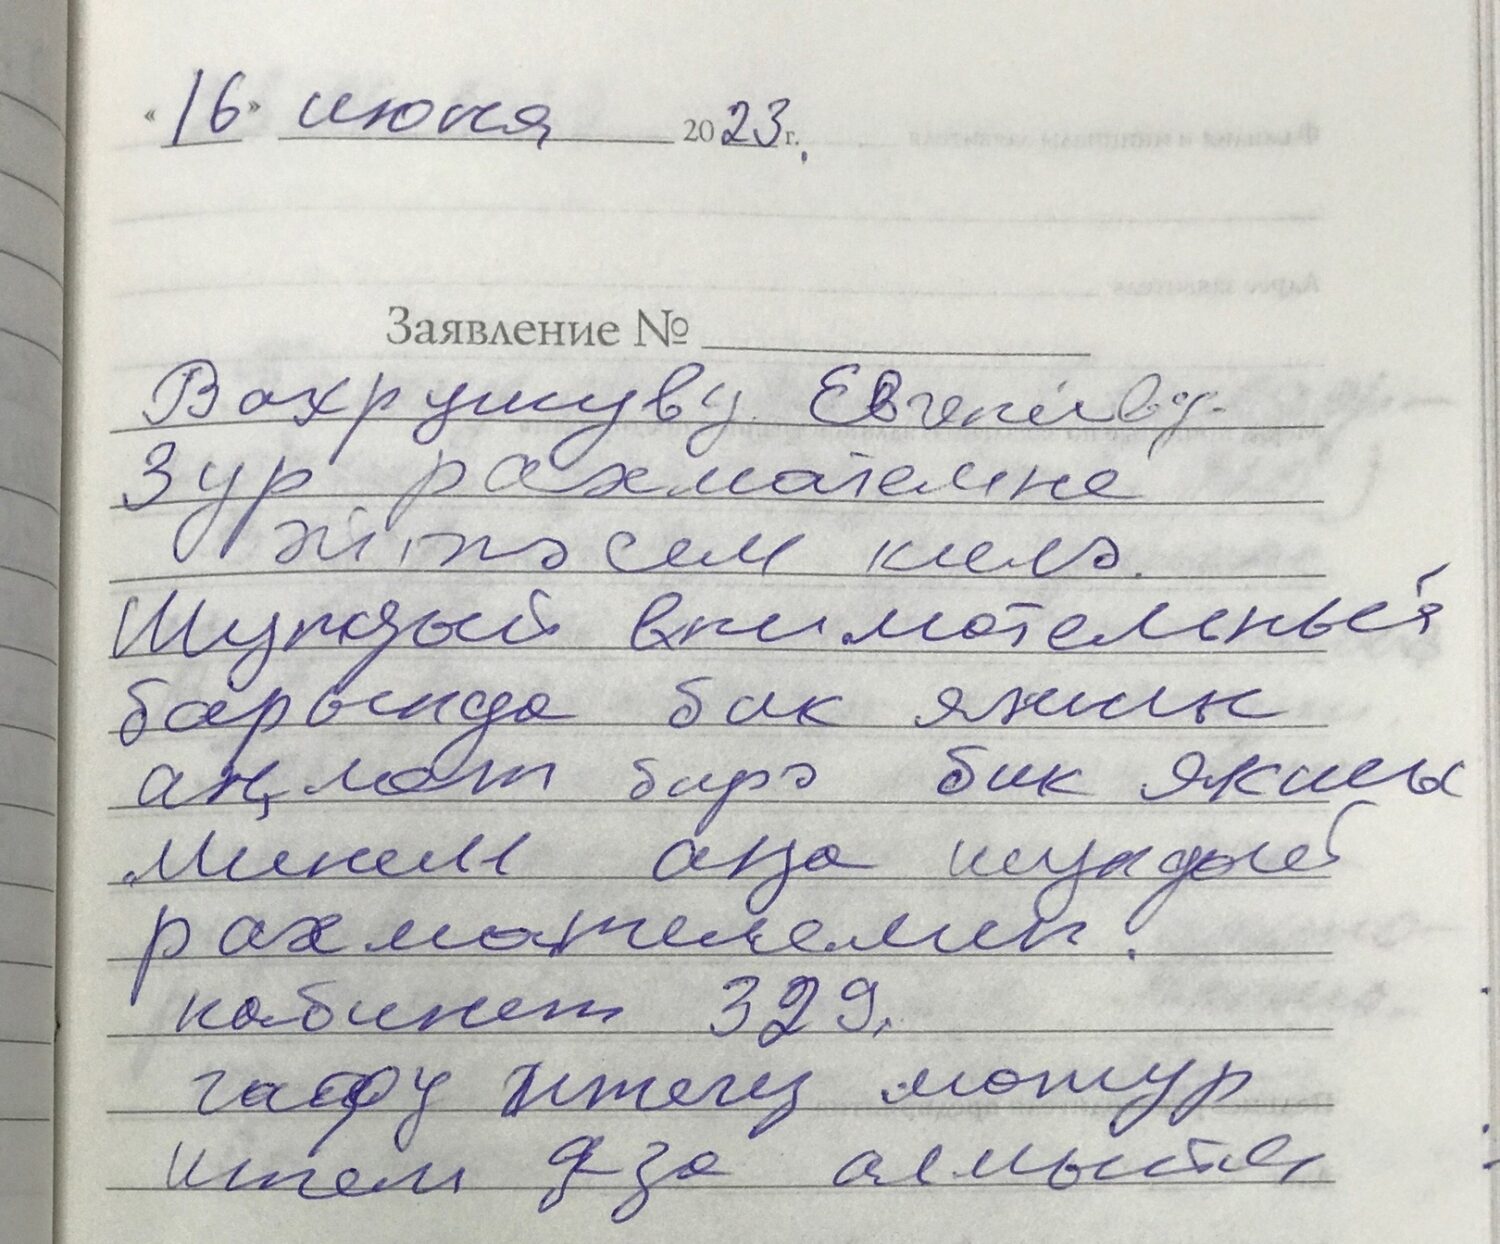 «16» июня 2023 г.
Заявление №
Вахрушуву Евгениву.
Зур рахмәтемне
әйтәсем килә.
Шундый внимательный
барында бик яхшы
аңлат бирә бик яхшы
Минем аңа шундый
рахмәтлемен.
кабинет 329.
гафу итегез матур
итеп яза алмыйм